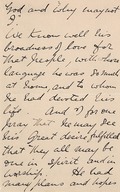 God and Toby may not
I?"
We know well his
broadness of love for
that people, with whose
language he was so much
at home, and to whom
he had devoted his
life. And I for one
pray that he may see
his great desire fulfilled
that they all may be
one in spirit and in
worship. He had
many plans and hopes